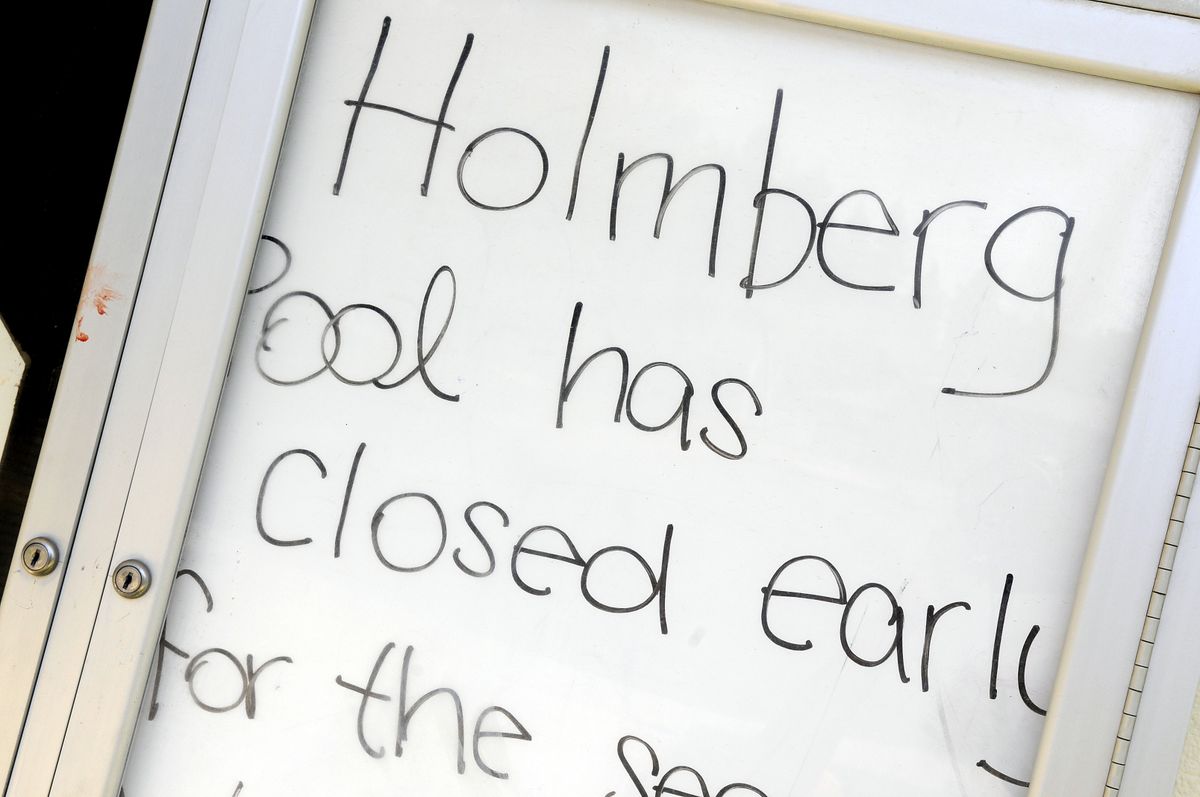 Holmberg
Pool has
Closed early
for the